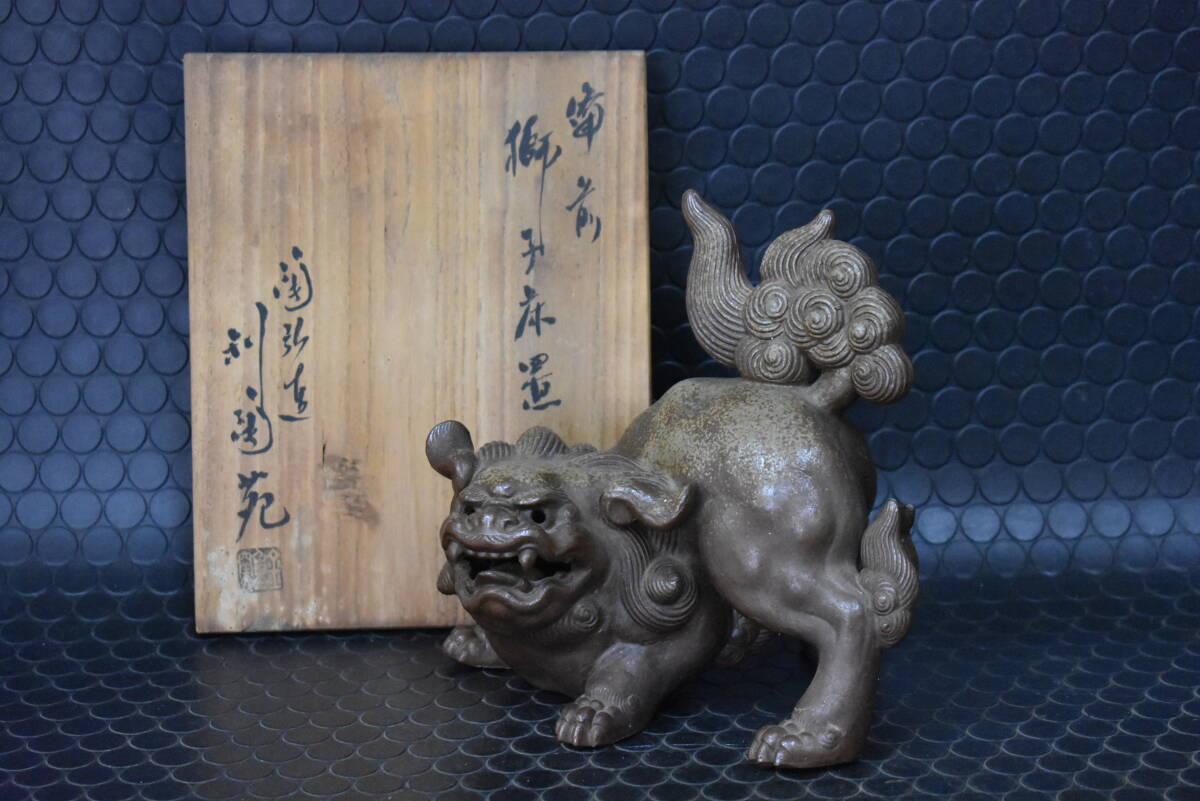 備前
獅子床置
陶弘造
利陶苑